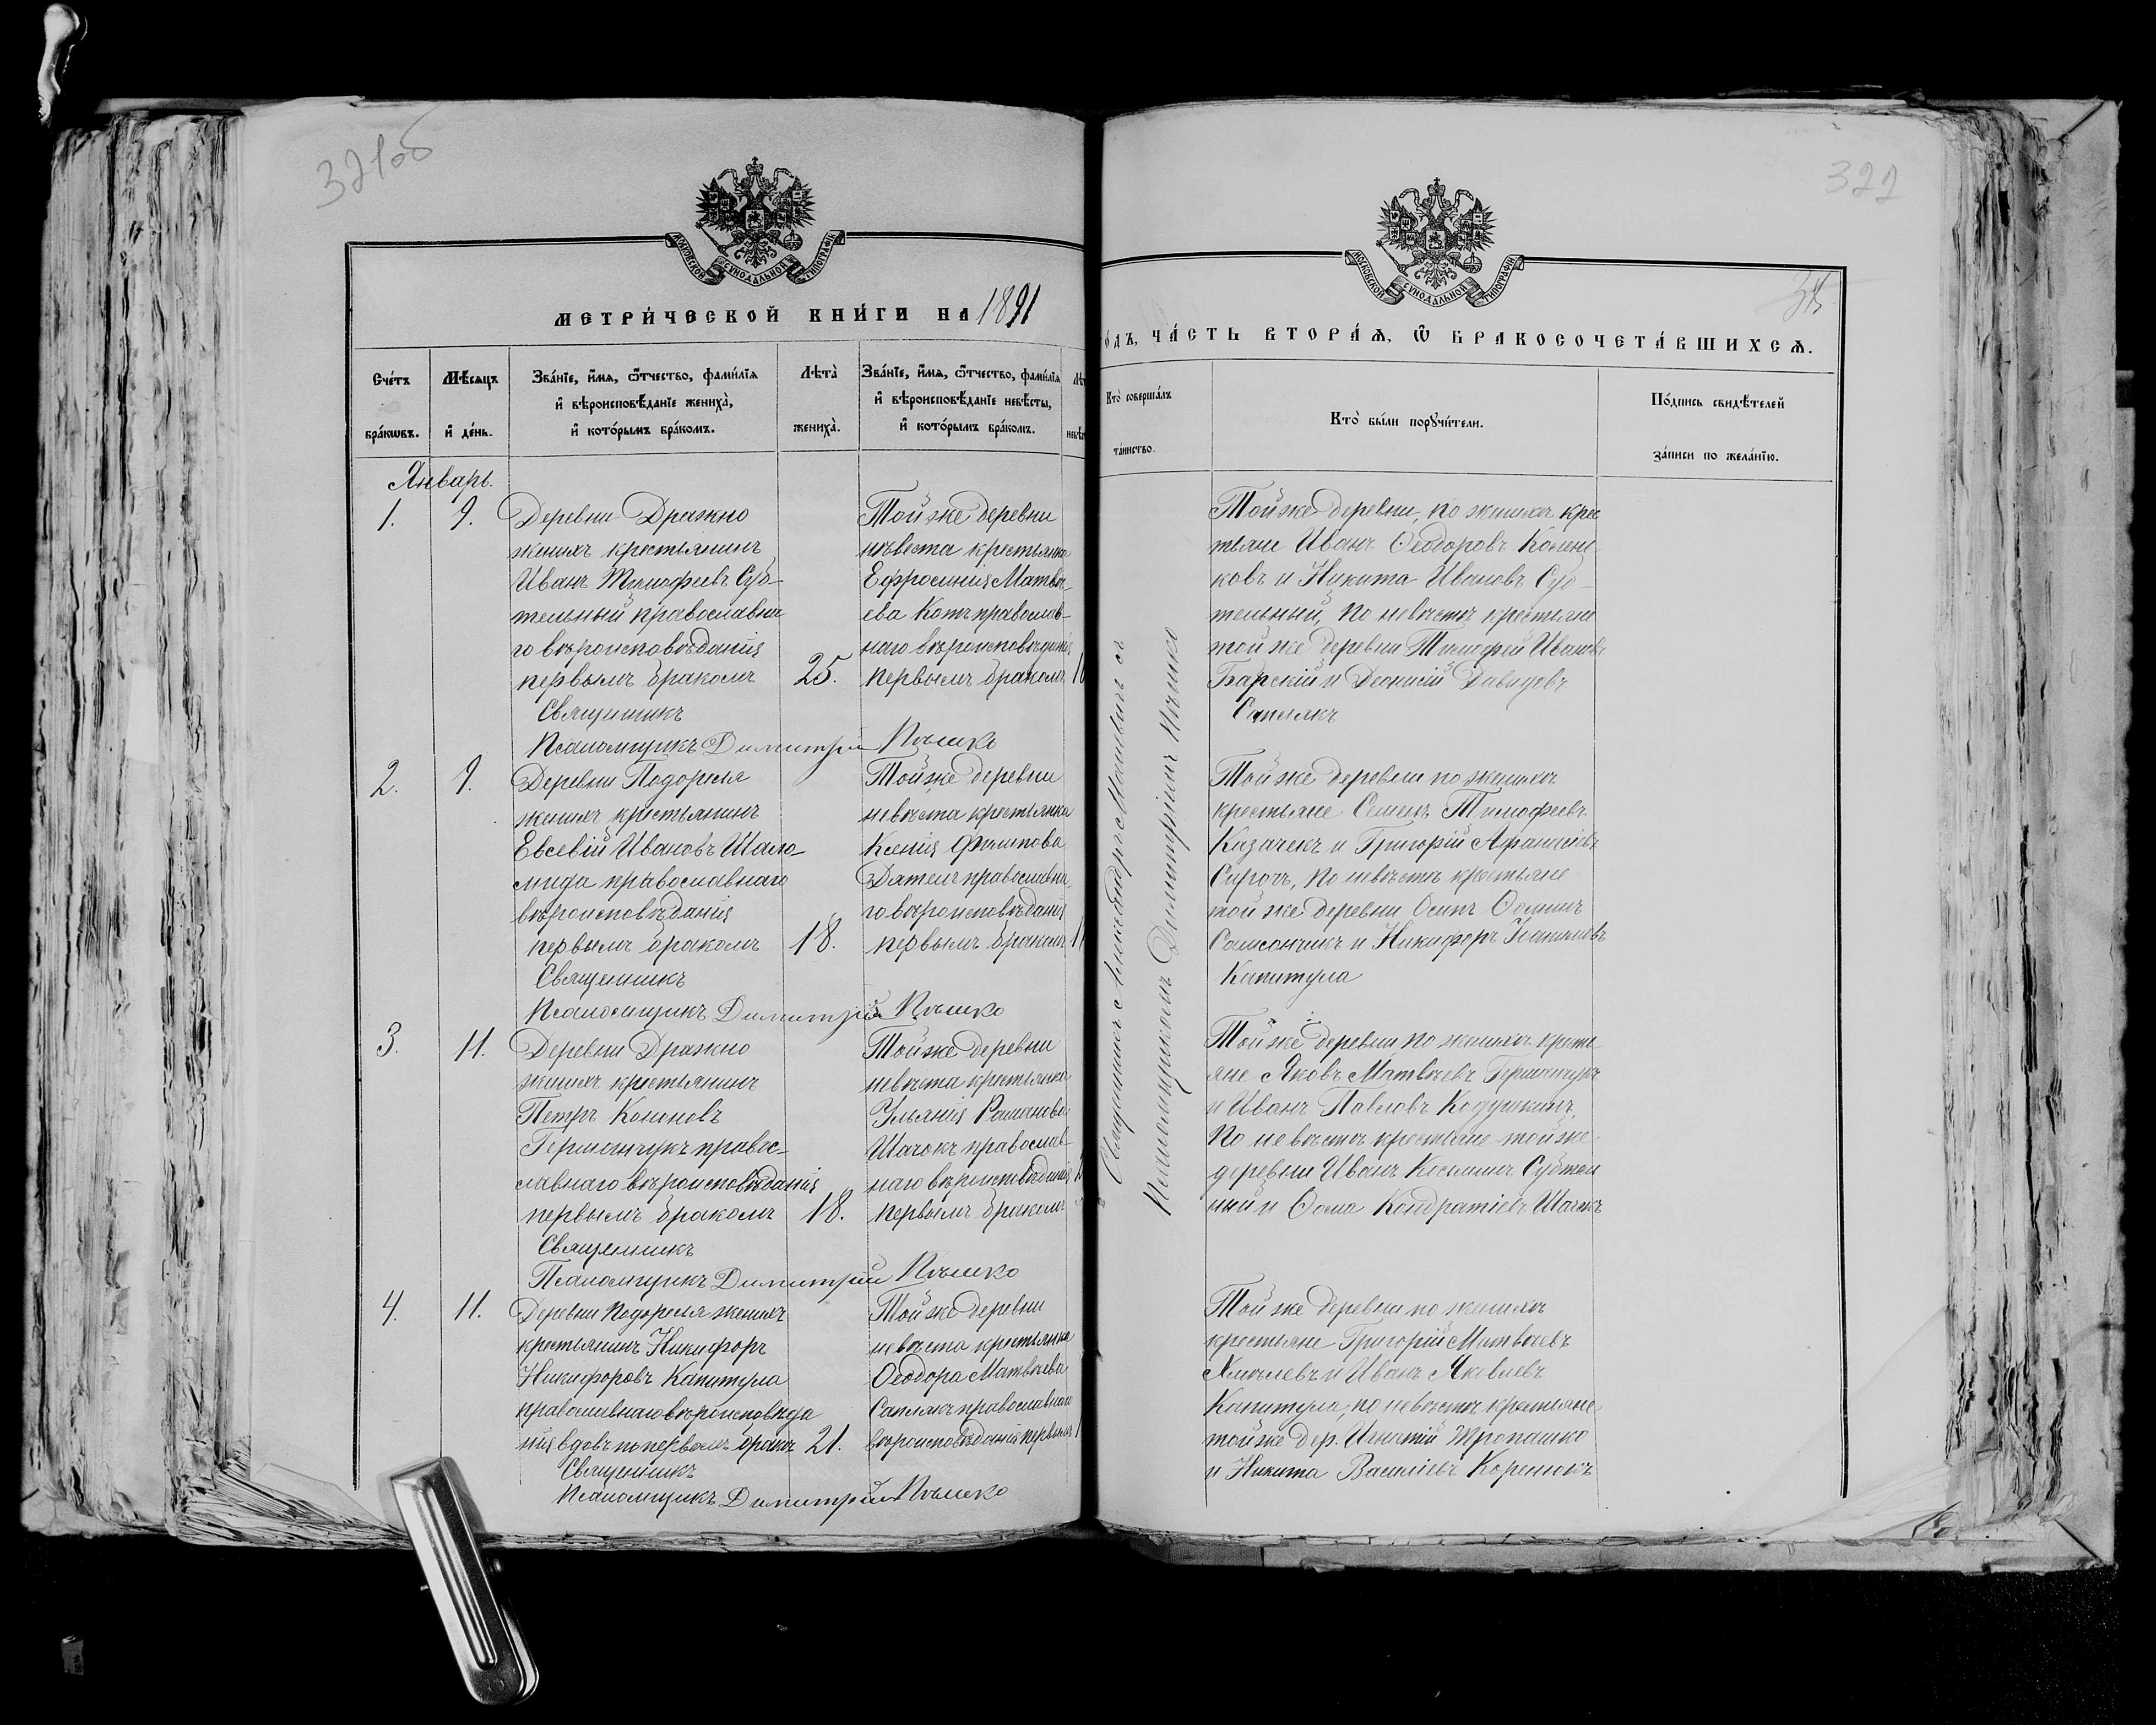 321об
МОСКОВСКОЙ СУНОДАЛЬНОЙ ТИПОГРАФІИ
МЕТРИ́ЧЕСКОЙ КНИ́ГИ НА 1891
Сче́тъ бра́кѡвъ.
Мѣ́сяцъ и҆ де́нь.
Зва́нїе, и҆́мѧ, ѻ҆́тчество, фами́лїѧ
и҆ вѣроисповѣ́данїе жениха̀,
и҆ кото́рымъ бра́комъ.
Лѣта̀ жениха̀.
Зва́нїе, и҆́мѧ, ѻ҆́тчество, фами́лїѧ
и҆ вѣроисповѣ́данїе невѣ́сты,
и҆ кото́рымъ бра́комъ.
Январь.
1. 9.
Деревни Дражно
женихъ крестьянинъ
Иванъ Тимофеевъ Суб-
тельный православна
го вѣроисповѣданія
первымъ бракомъ 25.
Священникъ
Псаломщикъ Димитрій Пѣшко
Той же деревни
невѣста крестьянка
Ефросинія Матвѣ-
ева Котъ православ-
наго вѣроисповѣданія
первымъ бракомъ
2. 9.
Деревни Подоресья
женихъ крестьянинъ
Евсевій Ивановъ Шало-
мида православнаго
вѣроисповѣданія
первымъ бракомъ 18.
Священникъ
Псаломщикъ Димитрій Пѣшко
Той же деревни
невѣста крестьянка
Ксенія Филипова
Дятелъ православна-
го вѣроисповѣданія
первымъ бракомъ
3. 11.
Деревни Дражно
женихъ крестьянинъ
Петръ Кононовъ
Германчукъ правос-
лавнаго вѣроисповѣданія
первымъ бракомъ 18.
Священникъ
Псаломщикъ Димитрій Пѣшко
Той же деревни
невѣста крестьянка
Ульянія Романова
Шачокъ православ-
наго вѣроисповѣданія
первымъ бракомъ
4. 11.
Деревни Подоресья женихъ
крестьянинъ Никифоръ
Никифоровъ Капитула
православнаго вѣроисповѣда
нія вдовъ по первомъ бракѣ 21.
Священникъ
Псаломщикъ Димитрій Пѣшко
Той же деревни
невѣста крестьянка
Ѳеодора Матвѣева
Саплякъ православнаго
вѣроисповѣданія первымъ
322
МОСКОВСКОЙ СУНОДАЛЬНОЙ ТИПОГРАФІИ
О́ДЪ, ЧА́СТЬ ВТОРА́Ѧ, Ѽ БРАКОСОЧЕТА́ВШИХСѦ.
Кто̀ соверша́лъ та́инство.
Кто̀ бы́ли порꙋчи́тели.
По́дпись свидѣ́телей
за́писи по жела́нїю.
Псаломщикомъ Димитріемъ Пѣшко
Той же деревни, по женихѣ крес
тьяне Иванъ Ѳеодоровъ
и Никита Ивановъ Суб-
тельный, по невѣстѣ крестьяне
той же деревни Тимофей Ивановъ
Барскій и Діонисій Давидовъ
Саплякъ
Той же деревни по женихѣ
крестьяне Семенъ Тимофеевъ
Казачекъ и Григорій Афанасіевъ
по невѣстѣ крестьяне
той же деревни Осипъ Ѳоминъ
Самсончикъ и Никифоръ
Капитула
Той же деревни по женихѣ кресть
яне Яковъ Матвѣевъ Германчукъ
и Иванъ Павловъ Кодушкинъ,
по невѣстѣ крестьяне той же
деревни Иванъ Косминъ Субтель
ный и Ѳома Кондратіевъ Шачокъ
Той же деревни по женихѣ
крестьяне Григорій Матвѣевъ
и Иванъ Яковлевъ
Капитула, по невѣстѣ крестьяне
той же дер. Игнатій Тропашко
и Никита Василіевъ Коренюкъ